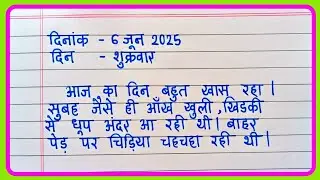 दिनांक - 6 जून 2025
दिन - शुक्रवार
आज का दिन बहुत खास रहा |
सुबह जैसे ही आँख खुली, खिड़की
से धूप अंदर आ रही थी | बाहर
पेड़ पर चिड़िया चहचहा रही थी |